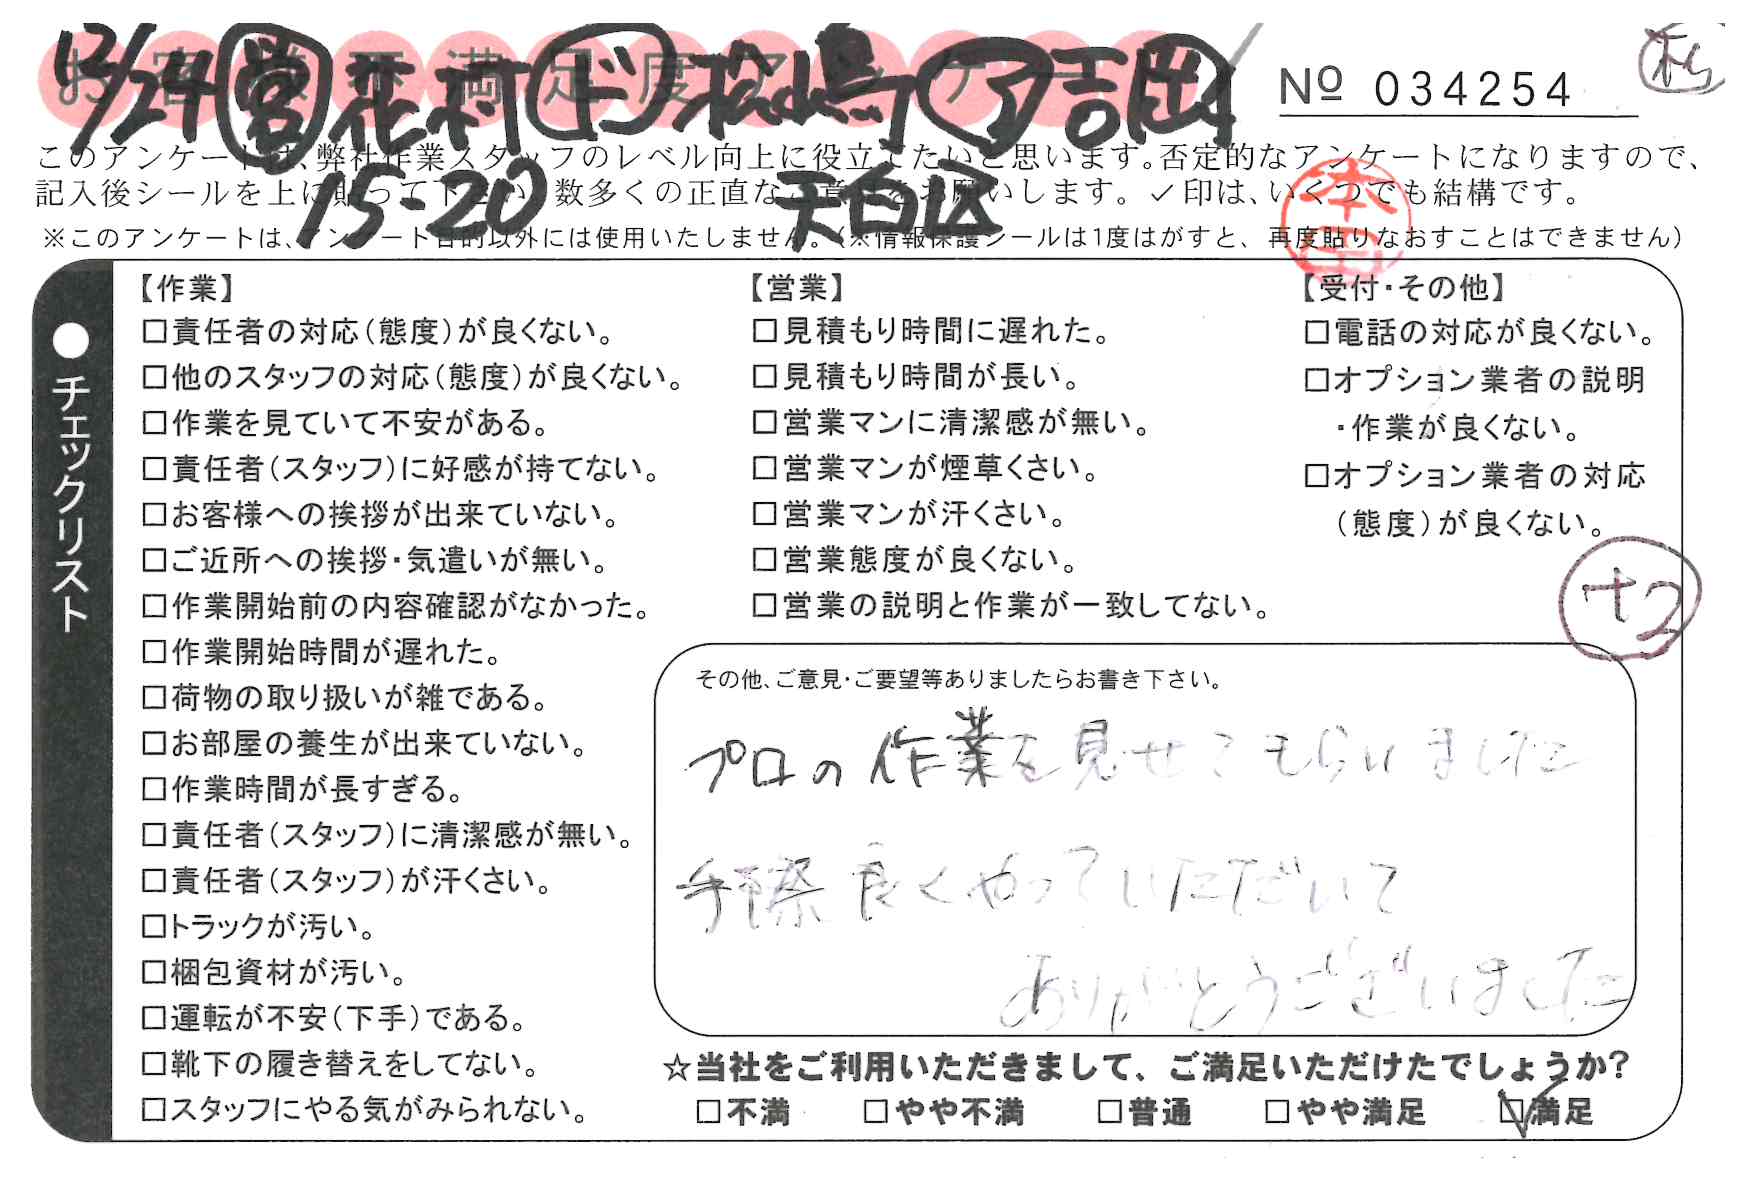 お客様不満足度アンケート
12/24 営 花村 ド 松嶋 ア 吉岡
№ 034254
このアンケートは、弊社作業スタッフのレベル向上に役立てたいと思います。否定的なアンケートになりますので、
記入後シールを上に貼って下さい。数多くの正直なご意見をお願いします。✓印は、いくつでも結構です。
15-20 天白区
本田
※このアンケートは、アンケート目的以外には使用いたしません。(※情報保護シールは1度はがすと、再度貼りなおすことはできません)
●チェックリスト
【作業】
□責任者の対応(態度)が良くない。
□他のスタッフの対応(態度)が良くない。
□作業を見ていて不安がある。
□責任者(スタッフ)に好感が持てない。
□お客様への挨拶が出来ていない。
□ご近所への挨拶・気遣いが無い。
□作業開始前の内容確認がなかった。
□作業開始時間が遅れた。
□荷物の取り扱いが雑である。
□お部屋の養生が出来ていない。
□作業時間が長すぎる。
□責任者(スタッフ)に清潔感が無い。
□責任者(スタッフ)が汗くさい。
□トラックが汚い。
□梱包資材が汚い。
□運転が不安(下手)である。
□靴下の履き替えをしてない。
□スタッフにやる気がみられない。
【営業】
□見積もり時間に遅れた。
□見積もり時間が長い。
□営業マンに清潔感が無い。
□営業マンが煙草くさい。
□営業マンが汗くさい。
□営業態度が良くない。
□営業の説明と作業が一致してない。
【受付・その他】
□電話の対応が良くない。
□オプション業者の説明
・作業が良くない。
□オプション業者の対応
(態度)が良くない。
+2
その他、ご意見・ご要望等ありましたらお書き下さい。
プロの作業を見せてもらいました
手際良くやっていただいて
ありがとうございました
☆当社をご利用いただきまして、ご満足いただけたでしょうか?
□不満 □やや不満 □普通 □やや満足 ☑満足